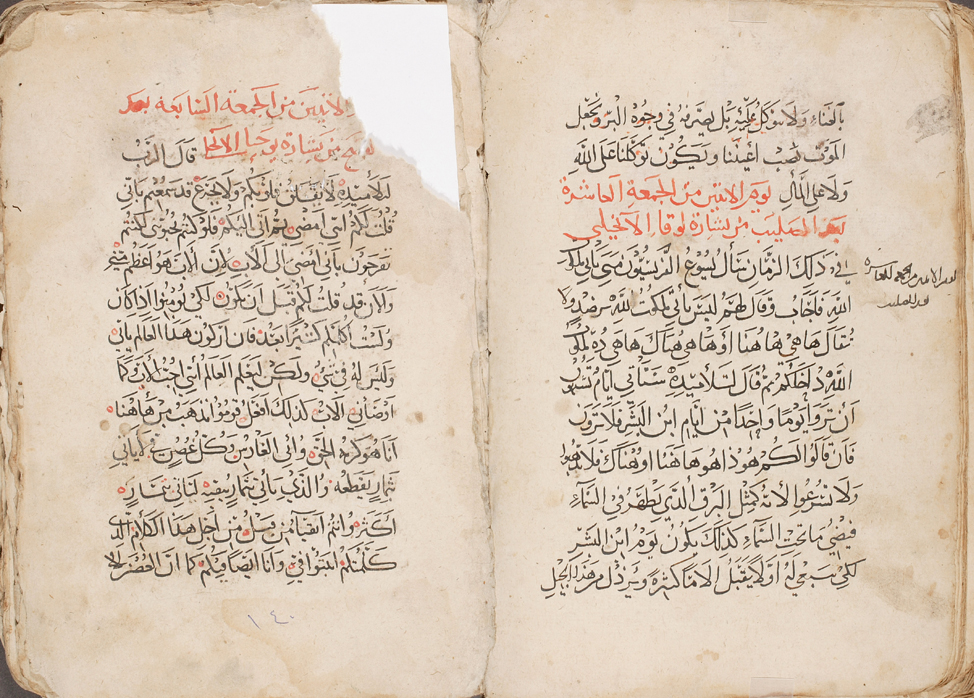 بالغناء ولا نتوكل عليه بل يصرفه في وجوه البر ونجعل
الموت نصب اعيننا وليكون توكلنا على الله
ولا على المال يوم الاثنين من الجمعة العاشرة
بعد الصليب من بشارة لوقا الانجيلي
في ذلك الزمان سأل يسوع الفريسيون متى يأتي ملكوت
الله فاجاب وقال لهم ليس يأتي ملكوت الله برصد ولا
يقال ها هي ها هنا او ها هي هناك ها هي ذه ملكوت
الله داخلكم ثم قال لتلاميذه ستأتي ايام تشتهون
أن تروا يوما واحدا من ايام ابن البشر فلا ترون
فان قالوا لكم هوذا هو ها هنا او هناك فلا تذهبوا
ولا تسرعوا لانه كمثل البرق الذي يظهر في السماء
فيضي ما تحت السماء كذلك يكون يوم ابن البشر
لكن ينبغي له اولا يقبل الاما كثيرة ويرذل من هذا الجيل
الاثنين من الجمعة السابعة بعد
من بشارة يوحنا الانجلي قال الرب
لتلاميذه لا تقلق قلوبكم ولا تجزع قد سمعتم باني
قلت لكم انني امضي ثم اتي اليكم فلو كنتم تحبوني لكنتم
تفرحون باني أمضي الى الاب لان الاب هو اعظم مني
والان قد قلت لكم قبل ان يكون لكي تؤمنوا اذا كان
ولست اكلمكم كثيرا بعد فان اركون هذا العالم ياتي
وليس له في شي ولكن ليعلم العالم أنني احب الاب وكما
اوصاني الاب كذلك افعل قوموا نذهب من هاهنا
أنا هو كرمة الحق وأبي الغارس وكل غصن في لا ياتي
ثمار يقطعه والذي يأتي بثمار ينقيه ليأتي بثمار
اكثر وانتم انقياء من قبل من اجل هذا الكلام الذي
كلمتكم اثبتوا في وانا ايضا فيكم كما ان الغصن لا
١٤٠